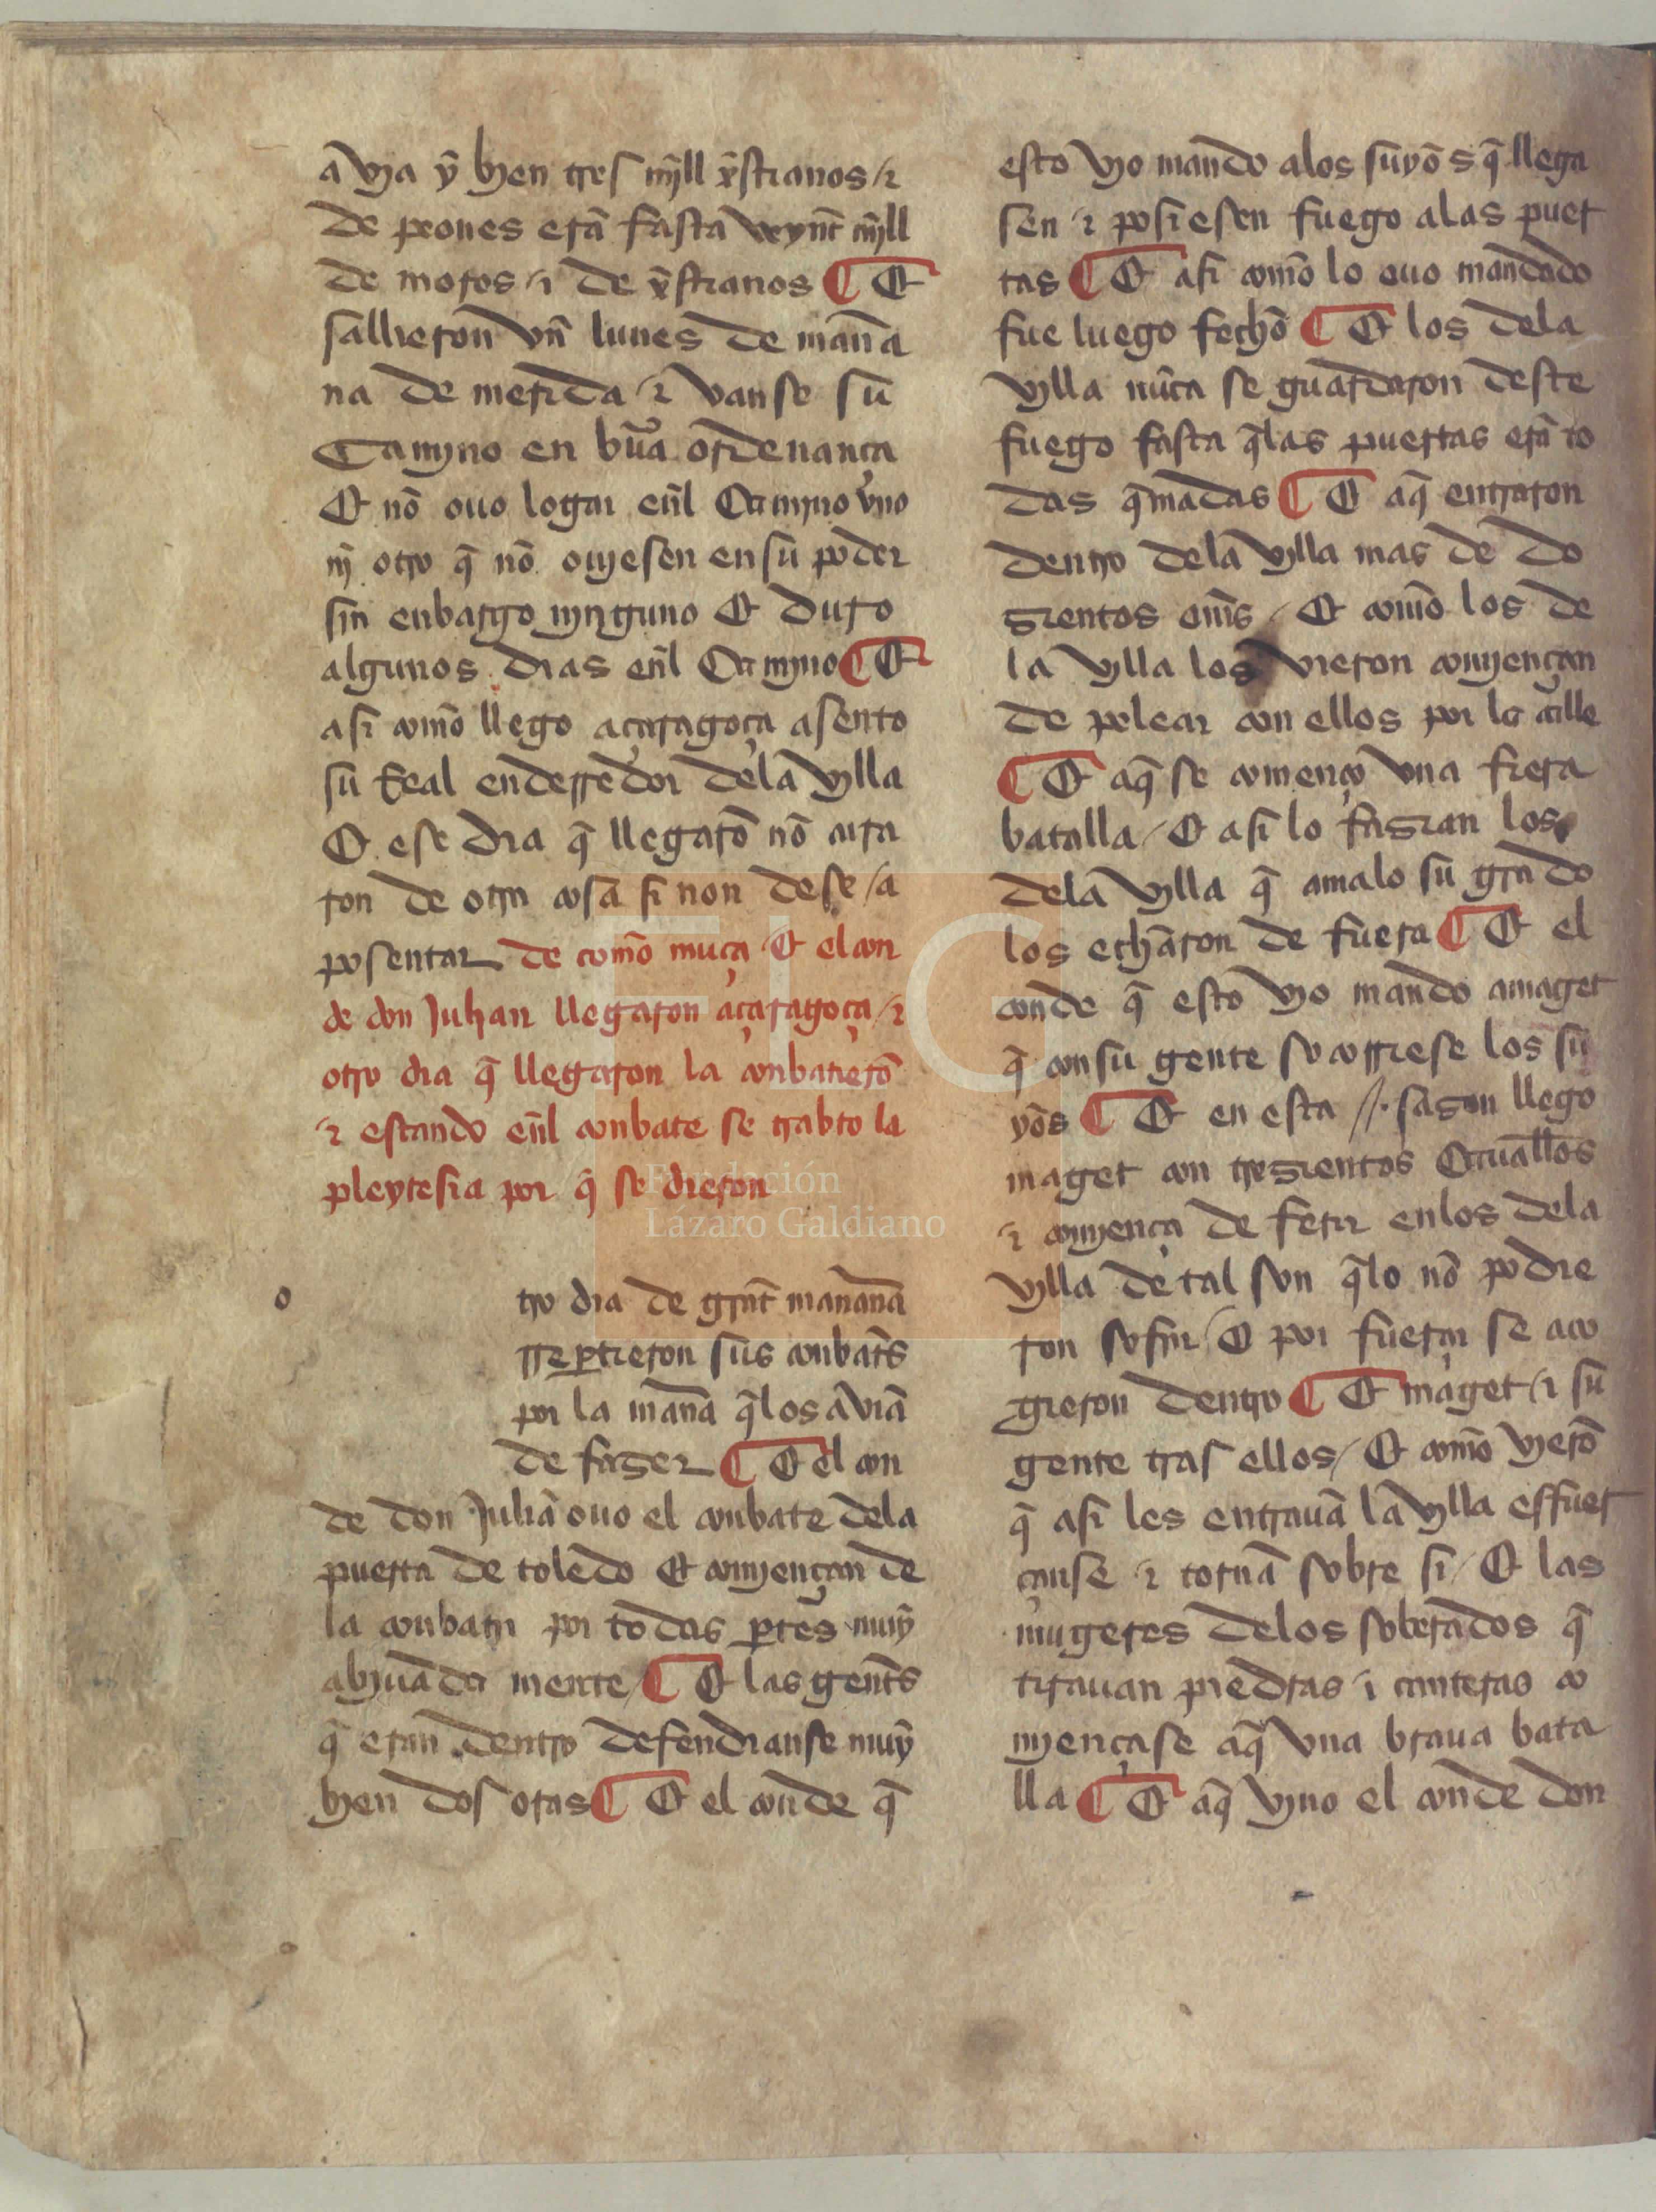 a vya ỹ byen tres mȷ̃ll xp̃stianos /⁊
de peones erã fasta veynt̃ mȷ̃ll
de moros /⁊ de xp̃stianos ¶ Et
sallieron vn̄ lunes de mañ a
na de merida /⁊ vanse su
Camyno en bũa ordenança
Et nõ ouo logar en̄l Camyno vno
nȷ̃ otro q̃ nõ ouyesen en su poder
sin enbargo nynguno Et duro
algunos dias en̄l Camyno ¶ Et
asi com̃o llego açaragoça asento
su Real enderredor dela vylla
E ese dia q̃ llegarõ nõ cura
ron de otra cosa si non de se /a
posentar de com̃o muça Et el con
de don Julian llegaron açaragoça /⁊
otro dia q̃ llegaron la conbatierõ
/⁊ estando en̄l conbate se trabto la
pleytesia por q̃ se dieron
o
tro dia de grant̃ mañana
rrep̱tieron sus conbat̃s
por la mañana q̃los a viã
de fazer ¶ Et el con
de don Juliã ouo el conbate dela
puerta de toledo Et comyençan de
la conbatir por todas p̱tes muỹ
abiuada mente / ¶ Et las gent̃s
q̃ eran dentro defendianse muỹ
byen dos oras ¶ Et el conde q̃
esto vyo mando alos suyos q̃ llega
sen /⁊ posiesen fuego alas puer
tas ¶ Et asi com̃o lo ouo mandado
fue luego fecho ¶ Et los dela
vylla nũca se guardaron deste
fuego fasta q̃las puertas erã to
das q̃madas ¶ Et aq̃ entraron
dentro dela vylla mas de do
zientos om̃s / Et com̃o los de
la vylla los vieron comyençan
de pelear con ellos por la calle
¶ Et aq̃ se començo vna fiera
batalla / Et asi lo fazian los
dela vylla q̃ amalo su grado
los echaron de fuera ¶ Et el
conde q̃ esto vyo mando amaget
q̃ con su gente socorriese los su
yos ¶ Et en esta //· sazon llego
maget con trezientos Cauall̃os
/⁊ comyença de ferir enlos dela
vylla de tal son q̃lo nõ podie
ron sofrir / E por fuerça se aco
gieron dentro ¶ Et maget /⁊ su
gente tras ellos / Et com̃o vyerõ
q̃ asi les entrauã la vylla esfuer
çanse /⁊ tornã sobre si / Et las
mugeres delos soberados q̃
tirauan piedras /⁊ canteras co
myençase aq̃ vna braua bata
lla ¶ Et aq̃ vyno el conde don
Fundación
Lázaro Galdiano